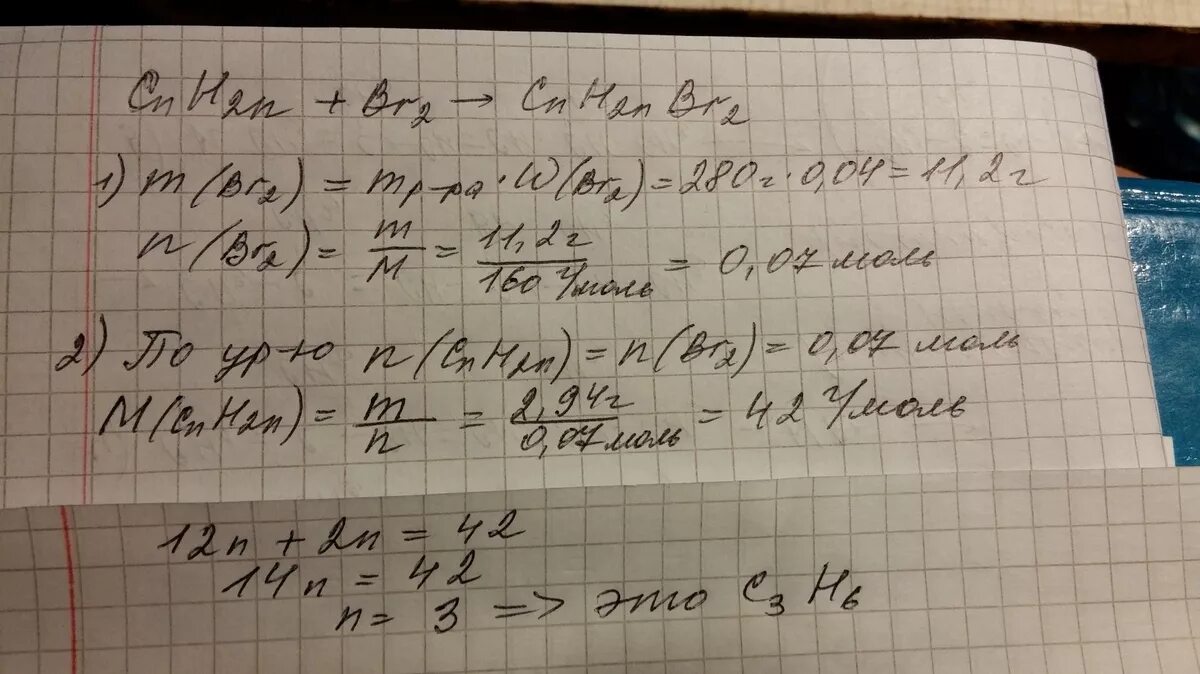 CnH2n + Br2 → CnH2nBr2
1) m(Br2) = mр-ра · W(Br2) = 280г · 0,04 = 11,2г
n(Br2) = m/M = 11,2г/160 г/моль = 0,07 моль
2) По ур-ю n(CnH2n) = n(Br2) = 0,07 моль
M(CnH2n) = m/n = 2,94г/0,07 моль = 42 г/моль
12n + 2n = 42
14n = 42
n = 3 => это C3H6